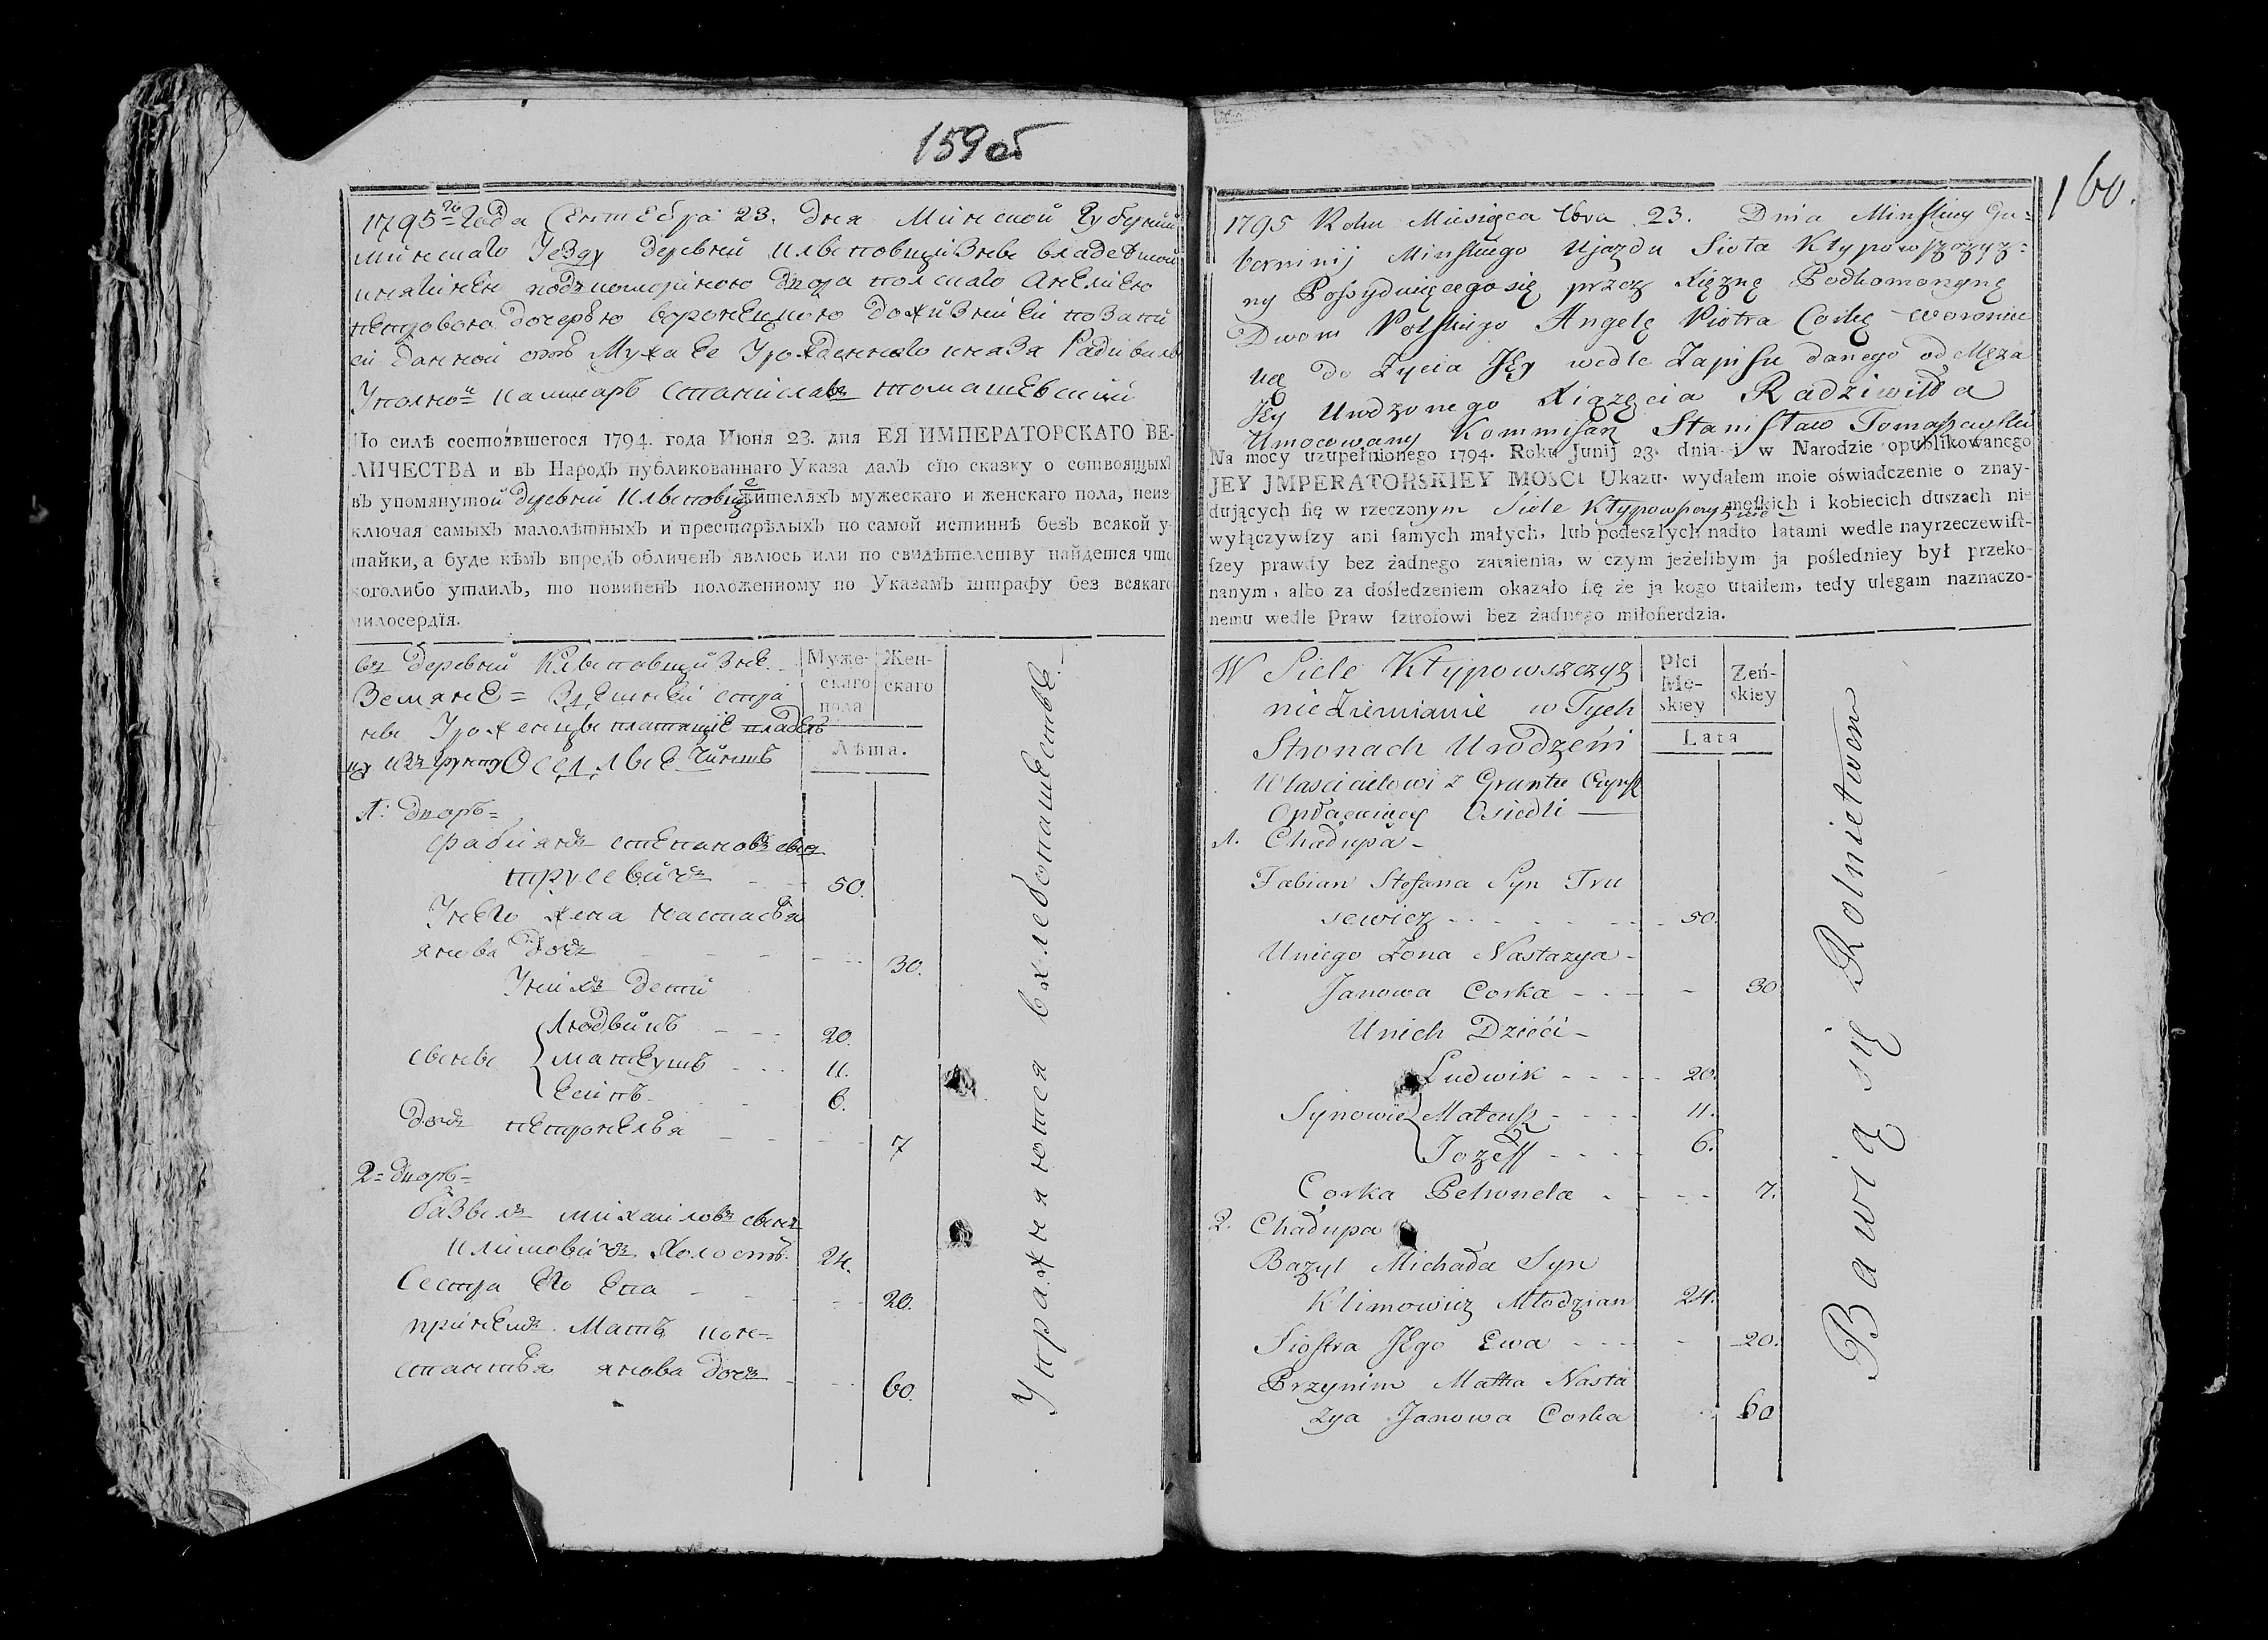 159 об
1795го Года Сентебра 23. дня Минской Губерний
минскаго Уезду деревней Клыповщизны владеемой
княгинею подкоморіною двора полскаго Анелиею
петровою дочерью воронецкою дожизнией позапи
си данной отъ Мужа Ее Урожденнаго князя Радивила
Уполно= камисаръ Станиславъ томашевский
По силѣ состоявшегося 1794. года Июня 23. дня ЕЯ ИМПЕРАТОРСКАГО ВЕ-
ЛИЧЕСТВА и въ Народъ публикованнаго Указа далъ сію сказку о состоящихъ
въ упомянутой деревни Клыповщизне жителяхъ мужескаго и женскаго пола, неиз-
ключая самыхъ малолѣтныхъ и престарѣлыхъ по самой истиннѣ безъ всякой у-
тайки, а буде кѣмъ впредь обличенъ явлюсь или по свидѣтелству найдется что
коголибо утаилъ, то повиненъ положенному по Указамъ штрафу без всякаго
милосердія.
въ деревней Клыповщизне
Земяне = Здешней стра
ны Уроженцы платящіе владель
цу изъ грунту Оселлые Чиншъ
Муже-
скаго
пола
Жен-
скаго
Лѣта.
1: дворъ=
Фабиянъ степановъ сынъ
трусевичъ - - 50.
Унего жена настасья
янова дочь - - - - 30.
Унихъ дети
Людвикъ - - - 20.
сыновы матеушъ - - - 11.
Есипъ - - 6.
дочь петронелья - - - - 7
2= дворъ=
базыль михаиловъ сынъ
климовичъ Холостъ. 24.
Сестра Его Ева - - - - 20.
принемъ. Мать наст-
стасья янова дочь - - 60.
Упражняются в хлебопашестве.
160.
1795 Roku Miesięca 7bra 23. Dnia Minskiey Gu=
bernnij Minskiego Ujazdu Sioła Kłypowszczyz=
ny Possyduiącego się przez Xiężnę Podkomorzynę
Dworu Polskiego Angelę Piotra Corkę Woronie
cką do Życia Jey wedle Zapisu danego od Męża
Jey Urodzonego Xiążęcia Radziwiłła
Umocowany Kommisarz Stanisław Tomaszewski
Na mocy uzupełnionego 1794. Roku Junij 23. dnia i w Narodzie opublikowanego
JEY JMPERATORSKIEY MOSCI Ukazu. wydałem moie oświadczenie o znay-
dujących się w rzeczonym Siele Kłypowszczyznie męskich i kobiecich duszach nie
wyłączywszy ani samych małych, lub podeszłych nadto latami wedle nayrzeczewist-
szey prawdy bez żadnego zataienia, w czym jeżelibym ja pośledniey był przeko-
nanym, albo za dośledzeniem okazało się że ja kogo utaiłem, tedy ulegam naznaczo-
nemu wedle Praw sztrofowi bez żadnego miłosierdzia.
W Siele Kłypowszczyz
nie Ziemianie w Tych
Stronach Urodzeni
Własciciełowi z Gruntu Czynsz
Opłacaiący Osiedli
Płci
Mę-
skiey
Żeń-
skiey
Lata
1. Chałupa -
Fabian Stefana Syn Tru
sewicz - - - - - 50.
Uniego Żona Nastazya -
Janowa Corka - - - - 30
Unich Dzieći -
Ludwik - - - - 20.
Synowie Mateusz - - - - 11.
Jozeff - - - - 6.
Corka Petronela - - - - 7.
2. Chałupa
Bazyl Michała Syn
Klimowicz Młodzian 24.
Siostra Jego Ewa - - - - 20.
Przynim Matka Nasta
zya Janowa Corka 60
Bawią się Rolnictwem